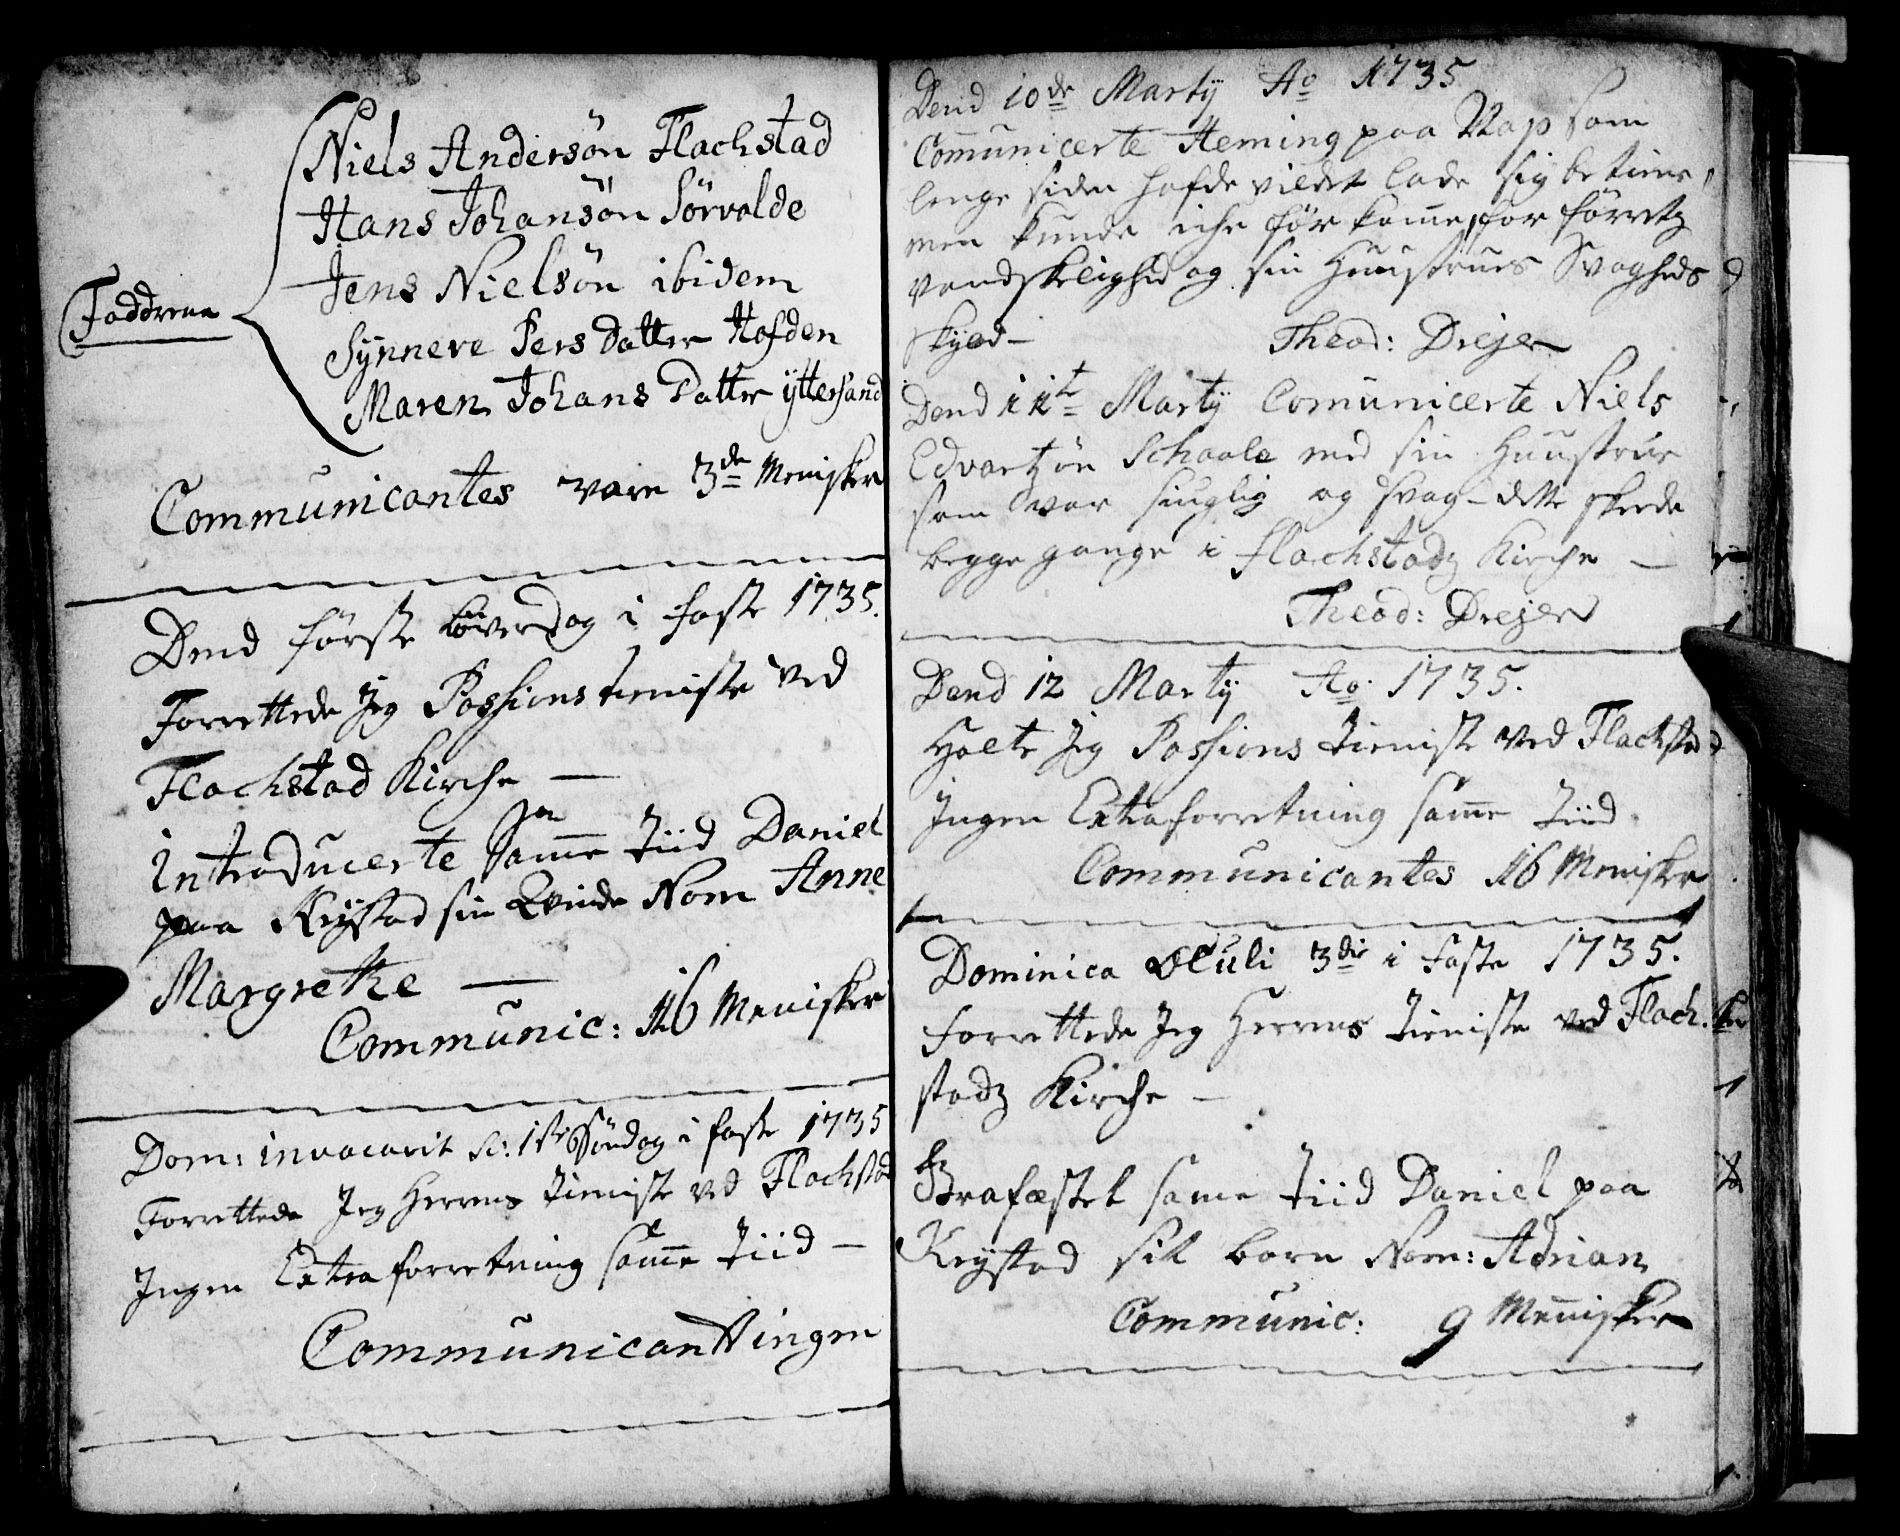 Niels Andersøn Flachstad
Hans Johansøn Sørvolde
Faddrene
Jens Nielsøn ibidem
Synneve Pers Datter Hofden
Maren Johans Datter yttersand
Communicantes vare 3de Menisker
Dend første Løverdag i faste 1735.
Forrettede Jeg Passions tieniste ved
Flachstad Kirche —
Introducerte samme Tiid Daniel
paa Reystad sin Qvinde Nom Anne
Margrethe —
Communic: 16 Menisker
Dom: invocavit sc: 1ste Søndag i faste 1735
Forrettede Jeg Herrens tieniste ved Flachstad
Ingen Extra forretning samme Tiid —
Communicant Vingen
Dend 10de Marty Ao 1735
Communicerte Heming paa Nap som
lenge siden hafde vildet lade sig betiene,
men kunde iche før komme, for førretz
vandskelighed og sin Huustrues Svagheds
skyld —
Theod: Drejer
Dend 11te Marty Communicerte Niels
Edvartzøn Schaale med sin Huustrue
som var siuglig og svag — dette skeede
begge gange i Flachstadz Kirche —
Theod: Drejer
Dend 12 Marty Ao. 1735.
Holte Jeg Passions Tieniste ved Flachstad
Ingen Extraforretning samme Tiid.
Communicantes 16 Menisker
Dominica Oculi 3die i faste 1735.
Forrettede Jeg Herrens Tieniste ved Flach-
stadz Kirche —
Strafæstet same Tiid Daniel paa
Reystad sit barn Nom: Adrian
Communic: 9 Menisker